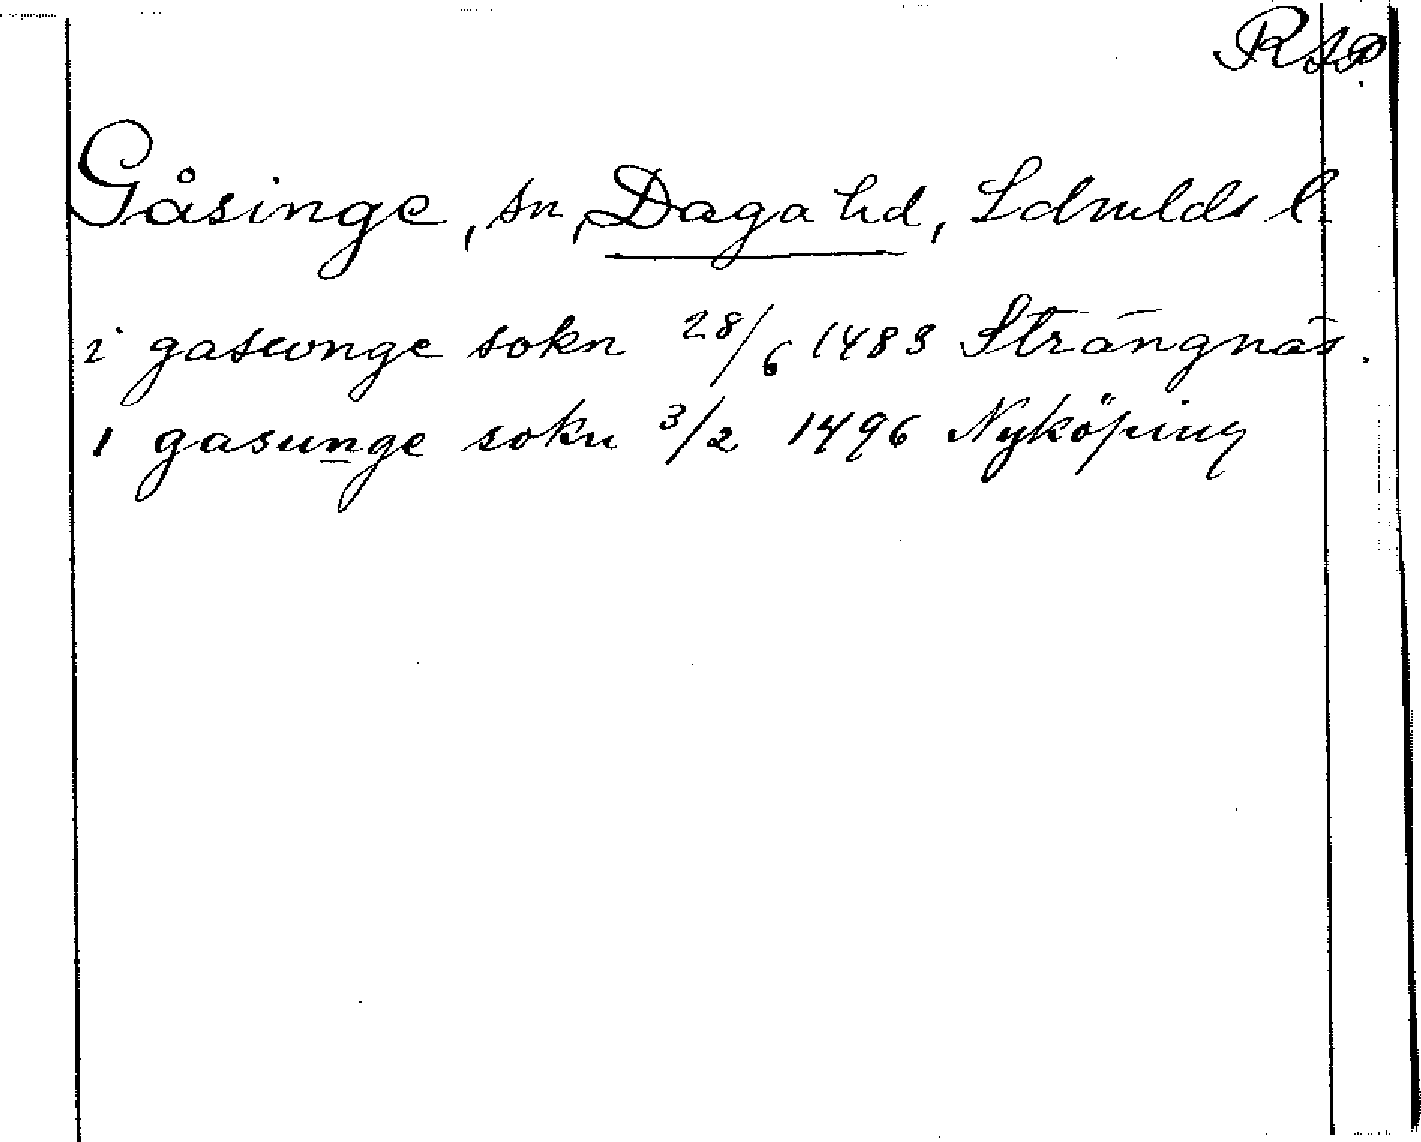 RAP.
Gåsinge, sn, Daga hd, Sdmlds l.
i gaswnge sokn 28/6 1483 Strängnäs.
1 gasunge sokn 3/2 1496 Nyköping